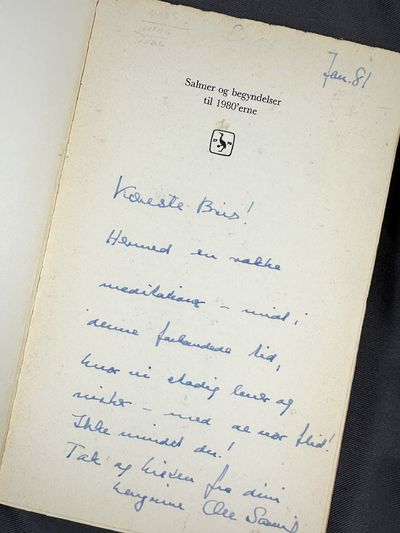 Jan. 81
Salmer og begyndelser
til 1980'erne
Kæreste Bris!
Hermed en række
meditationer – midt i
denne forbandede tid,
hvor vi stadig lever og
mister – med
Ikke mindst du!
Tak og hilsen fra din
hengivne Ole